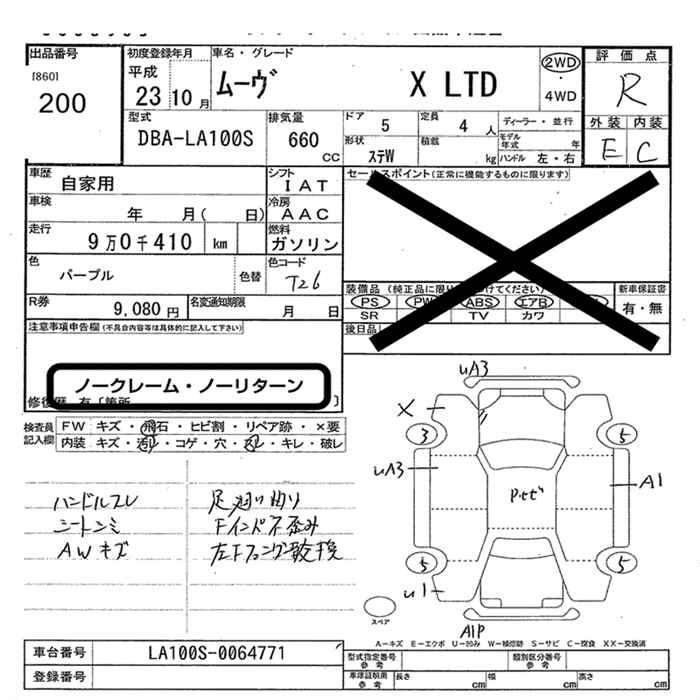 出品番号
[860]
200
初度登録年月
平成
23 10 月
車名・グレード
ムーヴ X LTD
2WD
・
4WD
評価点
R
外装 内装
E C
型式
DBA-LA100S
排気量
660 CC
ドア 5
定員 4 人
ディーラー・並行
形状 ステW
積載 kg
モデル年式 年
ハンドル 左・右
車歴 自家用
シフト IAT
車検 年 月( 日)
冷房 AAC
走行 9万0千410 km
燃料 ガソリン
色 パープル
色替
色コード T26
R券 9,080 円
名変通知期限 月 日
セールスポイント(正常に機能するものに限ります)
装備品
PS PW ABS エアB
SR TV カワ
新車保証書
有・無
後日品
注意事項申告欄(不具合内容等は具体的に記入して下さい)
ノークレーム・ノーリターン
検査員記入欄
FW キズ・飛石・ヒビ割・リペア跡・×要
内装 キズ・汚れ・コゲ・穴・スレ・キレ・破レ
ハンドルスレ
シートシミ
AWキズ
uA3
X
3
5
uA3
A1
5
5
u1
A1P
スペア
A-キズ E-エクボ U-凹み W-補修跡 S-サビ C-腐食 XX-交換済
車台番号 LA100S-0064771
登録番号
型式指定番号 参考
類別区分番号 参考
車庫証明用 参考
長さ cm
幅 cm
高さ cm